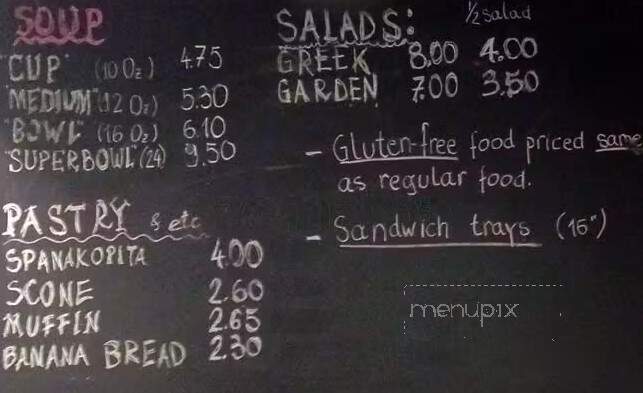 SOUP
"CUP" (10 Oz) 4.75
"MEDIUM" (12 Oz) 5.30
"BOWL" (16 Oz) 6.10
"SUPERBOWL" (24) 9.50
PASTRY & etc
SPANAKOPITA 4.00
SCONE 2.60
MUFFIN 2.65
BANANA BREAD 2.30
SALADS: 1/2 salad
GREEK 8.00 4.00
GARDEN 7.00 3.50
- Gluten-free food priced same
as regular food.
- Sandwich trays (16")
menupix